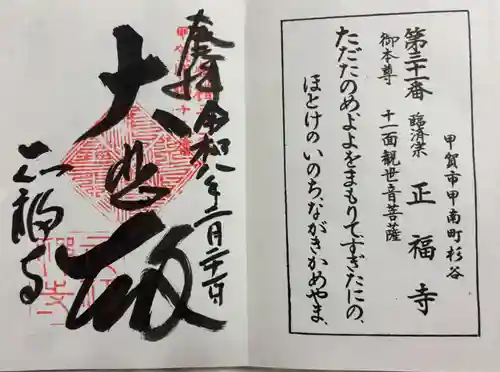 甲賀市甲南町杉谷
第三十一番 臨済宗 正福寺
御本尊 十一面観世音菩薩
ただたのめよよをまもりてすぎたにの、
ほとけのいのちながきかめやま、
奉拝 令和八年二月二十一日
大悲殿
正福寺